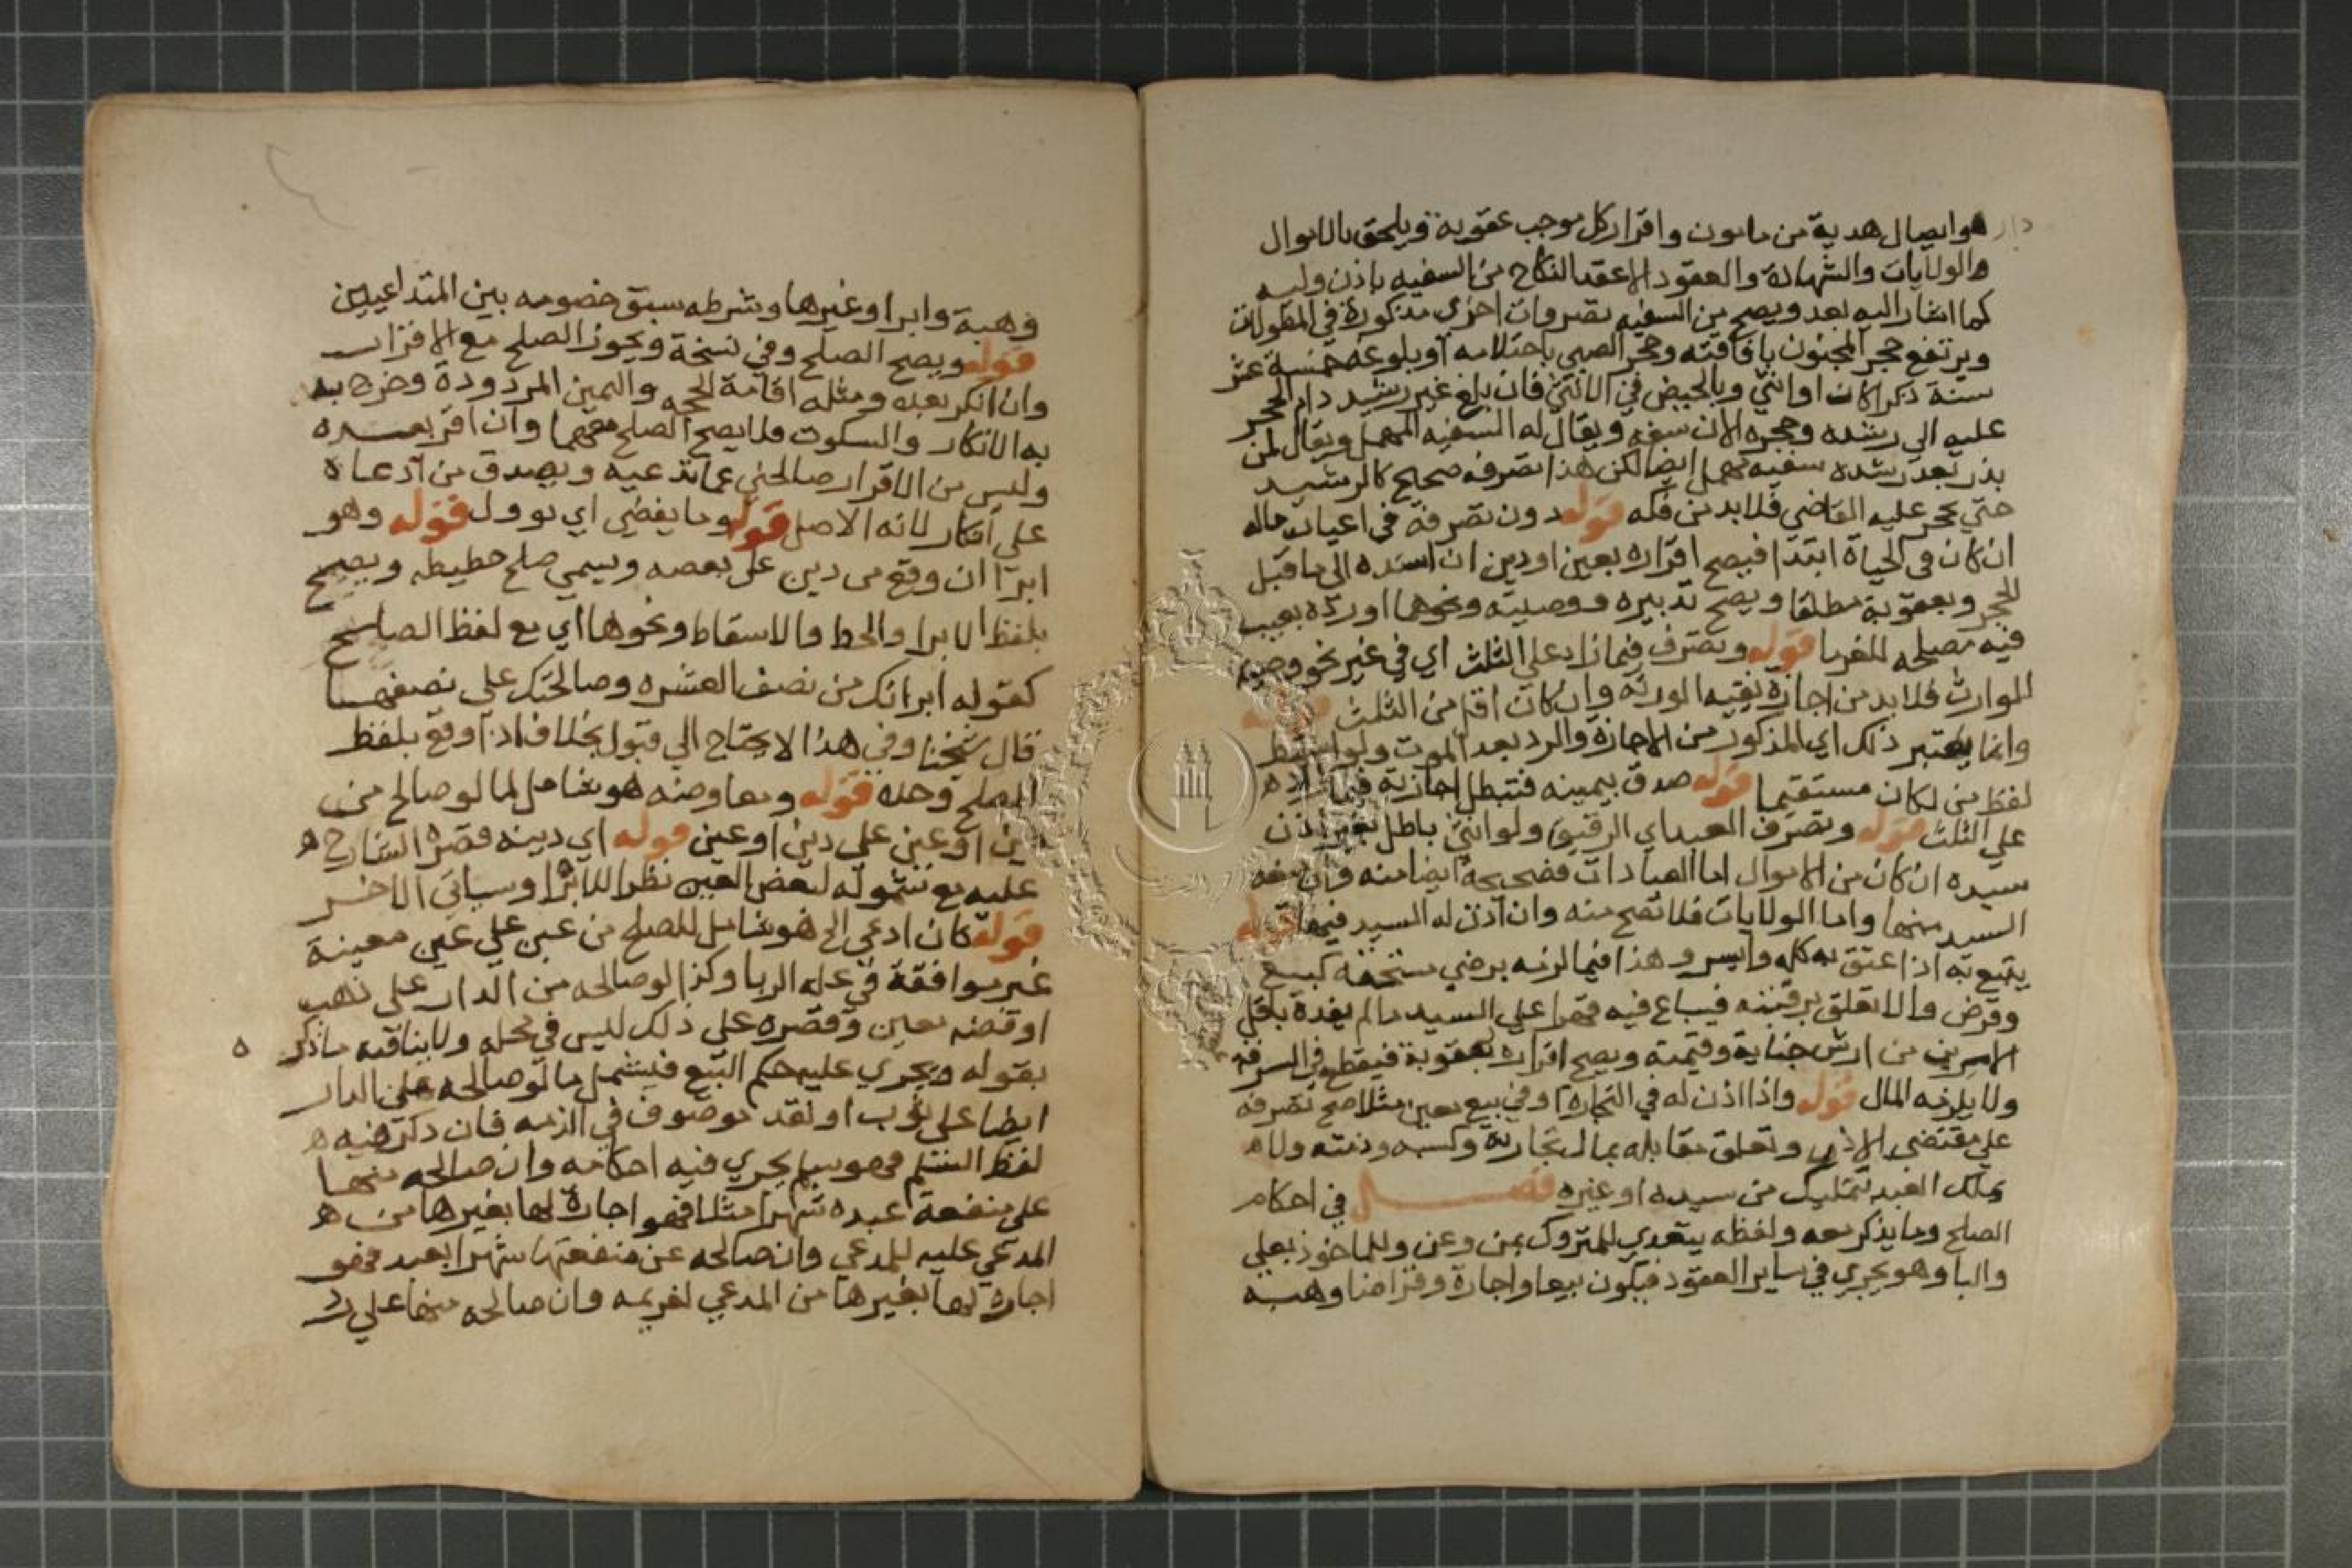 هو ايصال هدية من مامون واقرار كل موجب عقوبة ويلحق بالاموال
والولايات والشهادة والعقود الا عقد النكاح من السفيه باذن وليه
كما اشار اليه بعد ويصح من السفيه تصرفات اخرى مذكورة في المطولات
ويرتفع حجر المجنون بافاقته وحجر الصبي باحتلامه او بلوغه خمسة عشر
سنة ذكرا كان او انثي وبالحيض في الانثي فان بلغ غير رشيد دام الحجر
عليه الي رشده وحجره الان سفه ويقال له السفيه المهمل ويقال لمن
بذر بعد رشده سفيه مهمل ايضا لكن هذا تصرفه صحيح كالرشيد
حتي يحجر عليه القاضي فلا بد من فكه قوله دون تصرفه في اعيان ماله
ان كان في الحياة ابتدا فيصح اقراره بعين او دين ان اسنده الي ما قبل
الحجر وبعقوبة مطلقا ويصح تدبيره ووصيته ونحوهما او رده بعيب
فيه مصلحه للغرما قوله وتصرف فيما زاد علي الثلث اي في غير نحو وصية
للوارث فلا بد من اجازة بقيه الورثه وان كان اقل من الثلث قوله
وانما يعتبر ذلك اي المذكور من الاجازة والرد بعد الموت ولو اسقط
لفظ من لكان مستقيما قوله صدق بيمينه فتبطل اجازته فيما زاد ه
علي الثلث قوله وتصرف العبد اي الرقيق ولو انثي باطل بغير اذن
سيده ان كان من الاموال اما العبادات فصحيحة ايضا منه وان منعه
السيد منها واما الولايات فلا تصح منه وان اذن له السيد فيها قوله
يتبع به اذا عتق به كله وايسر وهذا فيما لزمه برضي مستحقه كبيع
وقرض والا تعلق برقبته فيباع فيه قهرا علي السيد ما لم يفده باقل
الامرين من ارش جناية وقيمته ويصح اقراره بعقوبة فيقطع في السرقه
ولا يلزمه المال قوله واذا اذن له في التجارة او في بيع معين مثلا صح تصرفه
علي مقتضي الاذن وتعلق مقابله بمال تجارته وكسبه وذمته ولا ه
يملك العبد بتمليك من سيده او غيره فصل في احكام
الصلح وما يذكر معه ولفظه يتعدي للمتروك بمن وعن وللماخوذ بعلي
والبا وهو يجري في ساير العقود فيكون بيعا واجارة وقراضا وهبه
وهبة وابرا وغيرها وشرطه سبق خصومه بين المتداعيين
قوله ويصح الصلح وفي نسخة ويجوز الصلح مع الاقرار
وان انكر بعده ومثله اقامة الحجه واليمين المردودة وخرج به
به الانكار والسكوت فلا يصح الصلح معهما وان اقر بعده
وليس من الاقرار صالحني عما تدعيه ويصدق من ادعاه
علي انكار لانه الاصل قوله وما يفضي اي يوول قوله وهو
ابرا ان وقع من دين علي بعضه ويسمي صلح حطيطه ويصح
بلفظ الابرا والحط والاسقاط ونحوها اي مع لفظ الصلح
كقوله ابراتك من نصف العشره وصالحتك علي نصفها
قال شيخنا وفي هذا لا يحتاج الي قبول بخلاف اذا وقع بلفظ
الصلح وحده قوله ومعاوضه هو شامل لما لو صالح من
دين او عين علي دين او عين قوله اي دينه قصره الشارح ه
عليه مع شموله لبعض العين نظرا للابرا وسياتي الاخر
قوله كان ادعي الخ هو شامل للصلح من عين علي عين معينة
غير موافقة في علة الربا وكذا لو صالحه من الدار علي ذهب
او فضه معين وقصره علي ذلك ليس في محله ولا ينافيه ما ذكر ه
بقوله ويجري عليه حكم البيع فيشمل ما لو صالحه علي الدار
ايضا علي ثوب او نقد موصوف في الذمه فان ذكر فيه ه
لفظ السلم فهو سلم يجري فيه احكامه وان صالحه منها
علي منفعة عبده شهرا مثلا فهو اجارة لها بغيرها من ه
المدعي عليه للمدعي وان صالحه عن منفعتها شهرا بعبد فهو
اجارة لها بغيرها من المدعي لغريمه وان صالحه منها علي رد